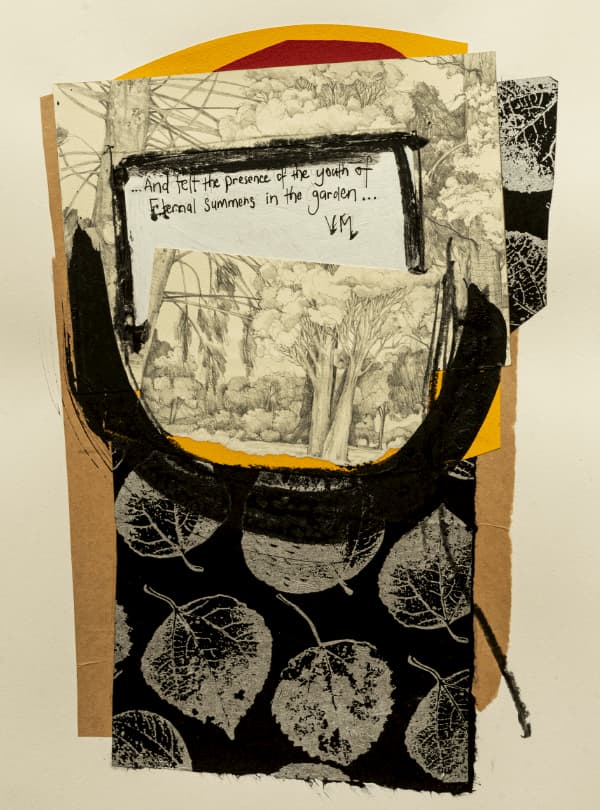 ...And felt the presence of the youth of
Eternal Summers in the garden...
VM